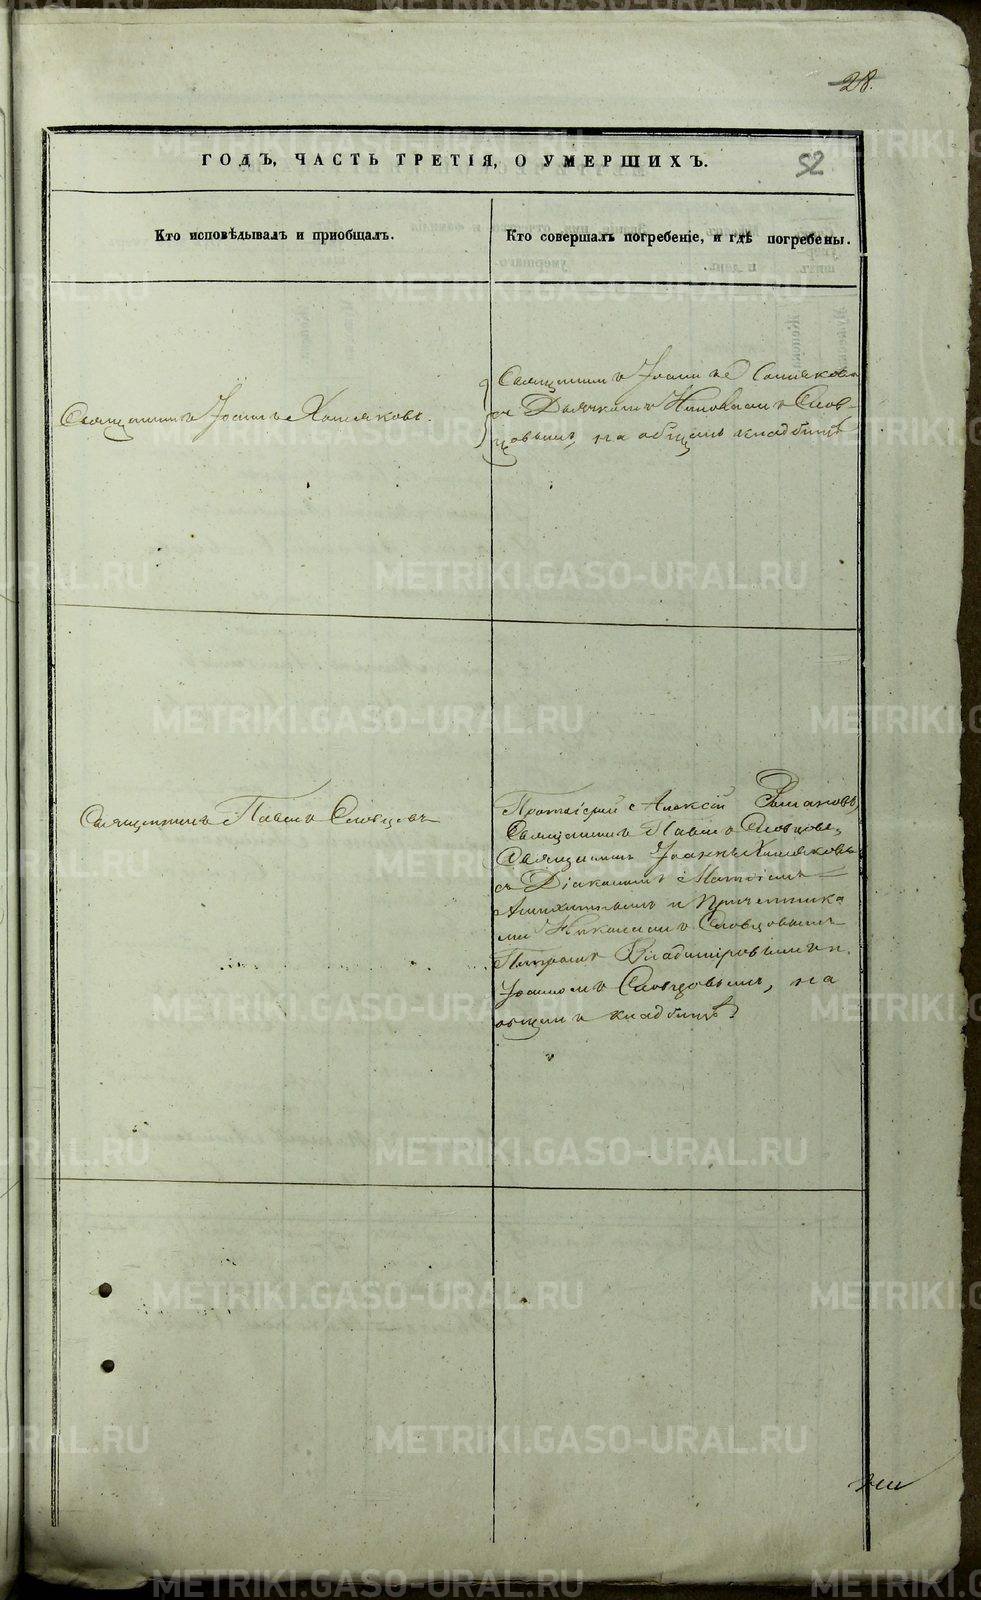 28.
ГОДЪ, ЧАСТЬ ТРЕТІЯ, О УМЕРШИХЪ.
52
Кто исповѣдывалъ и пріобщалъ.
Кто совершалъ погребеніе, и гдѣ погребены.
Священникъ Іоаннъ Хомяковъ.
Священникъ Іоаннъ Хомяковъ
съ Дьячкомъ Николаемъ Слов-
цовымъ, на общемъ кладбищѣ
Священникъ Павелъ Словцевъ
Протоіерей Алексій Романовъ,
Священникъ Павелъ Словцовъ,
Священникъ Іоаннъ Хомяковъ
съ Діакономъ
и причетника
ми Николаемъ Словцовымъ
Петромъ Владиміровымъ и
Іоанномъ Словцовымъ, на
общемъ кладбищѣ
METRIKI.GASO-URAL.RU